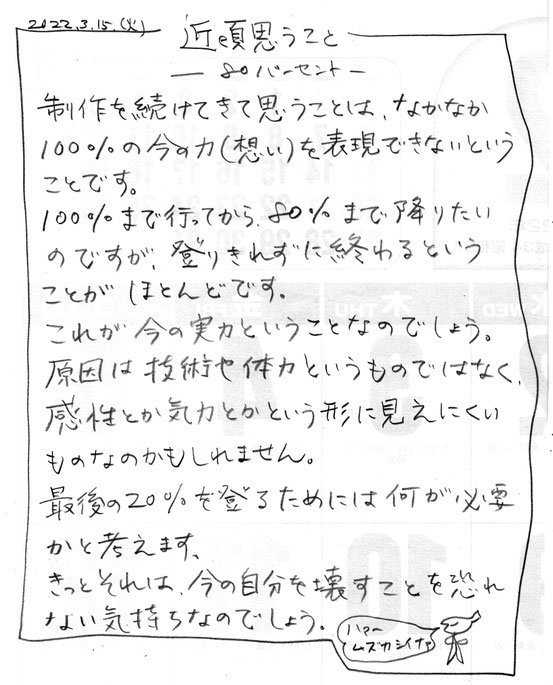 2022.3.15.(火)
近頃思うこと
— 80パーセント —
制作を続けてきて思うことは、なかなか
100%の今の力(想い)を表現できないという
ことです。
100%まで行ってから、80%まで降りたい
のですが、登りきれずに終わるという
ことがほとんどです。
これが今の実力ということなのでしょう。
原因は技術や体力というものではなく、
感性とか気力とかという形に見えにくい
ものなのかもしれません。
最後の20%を登るためには何が必要
かと考えます。
きっとそれは、今の自分を壊すことを恐れ
ない気持ちなのでしょう。
ハァー
ムズカシイナァ